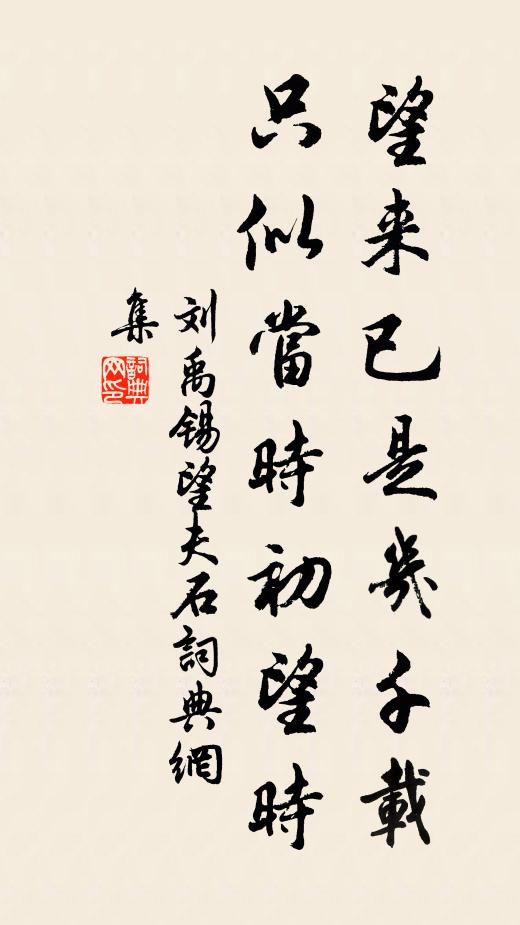 望来已是幾千載
只似當時初望時
刘禹锡望夫石詞典網
集
詞典網印